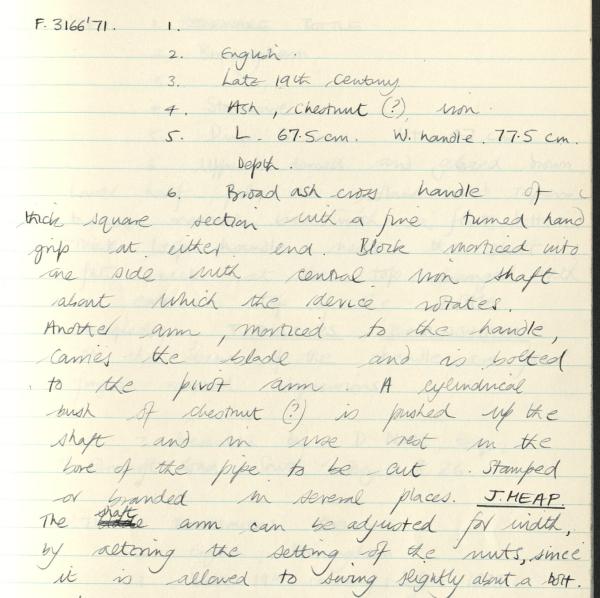 F. 3166'71. 1.
2. English.
3. Late 19th Century
4. Ash, Chestnut (?) iron.
5. L. 67.5 cm. W. handle. 77.5 cm.
Depth.
6. Broad ash cross handle of
thick square section with a fine turned hand
grip at either end. Block morticed into
one side with central iron shaft
about which the device rotates.
Another arm, morticed to the handle,
carries the blade and is bolted
to the pivot arm. A cylindrical
bush of chestnut (?) is pushed up the
shaft and in use rest in the
bore of the pipe to be cut. Stamped
or branded in several places. J. HEAP.
The shaft arm can be adjusted for width,
by altering the setting of the nuts, since
it is allowed to swing slightly about a bolt.